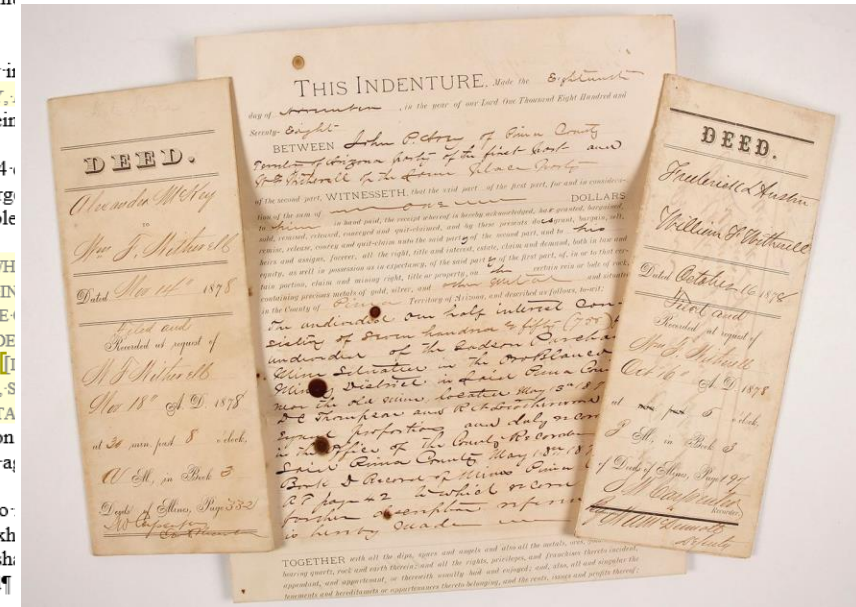 DEED.
Alexander McKey
to
Wm F. Witherell
Dated Nov 14th 1878
Filed and
Recorded at request of
W F Witherell
Nov 18th A. D. 1878
at 20 min. past 8 o'clock,
A M., in Book 3
Deeds of Mines, Page 332
THIS INDENTURE, Made the Eighteenth
day of November, in the year of our Lord One Thousand Eight Hundred and
Seventy-Eight
BETWEEN John P. of Pima County
Territory of Arizona party of the first part and
Witherell of the same place party
of the second part, WITNESSETH, that the said part of the first part, for and in consider-
ation of the sum of one DOLLARS
to him in hand paid, the receipt whereof is hereby acknowledged, has granted, bargained,
sold, remised, released, conveyed and quit-claimed, and by these presents does grant, bargain, sell,
remise, release, convey and quit-claim unto the said party of the second part, and to his
heirs and assigns, forever, all the right, title and interest, estate, claim and demand, both in law and
equity, as well in possession as in expectancy, of the said party of the first part, of, in or to that cer-
tain portion, claim and mining right, title or property, on the certain vein or lode of rock,
containing precious metals of gold, silver, and other metals and situated
in the County of Pima Territory of Arizona, and described as follows, to-wit:
The undivided one half interest con-
sisting of Seven hundred & fifty (750)
undivided of the Purchase
Mine Situated in the
Mining District in Said Pima Coun
near the old mine, located May 13th 18
D C Thompson and
equal proportions and duly record
in the office of the County Recorder
Said Pima County May 13th 187
Book D Record of Mines Pima
page 42 to which record
further description referen
is hereby made
TOGETHER with all the dips, spurs and angels and also all the metals, ores,
bearing quartz, rock and earth therein; and all the rights, privileges, and franchises thereto incident,
appendant, and appurtenant, or therewith usually had and enjoyed; and, also, all and singular the
tenements and hereditaments or appurtenances thereto belonging, and the rents, issues and profits thereof;
DEED.
Frederick L Austin
to
William F Witherell
Dated October 16 1878
Filed and
Recorded at request of
Wm F. Witherell
Oct 16th A. D. 1878
at min. past 5 o'clock,
P M., in Book 3
of Deeds of Mines, Page 197
Recorder
Deputy